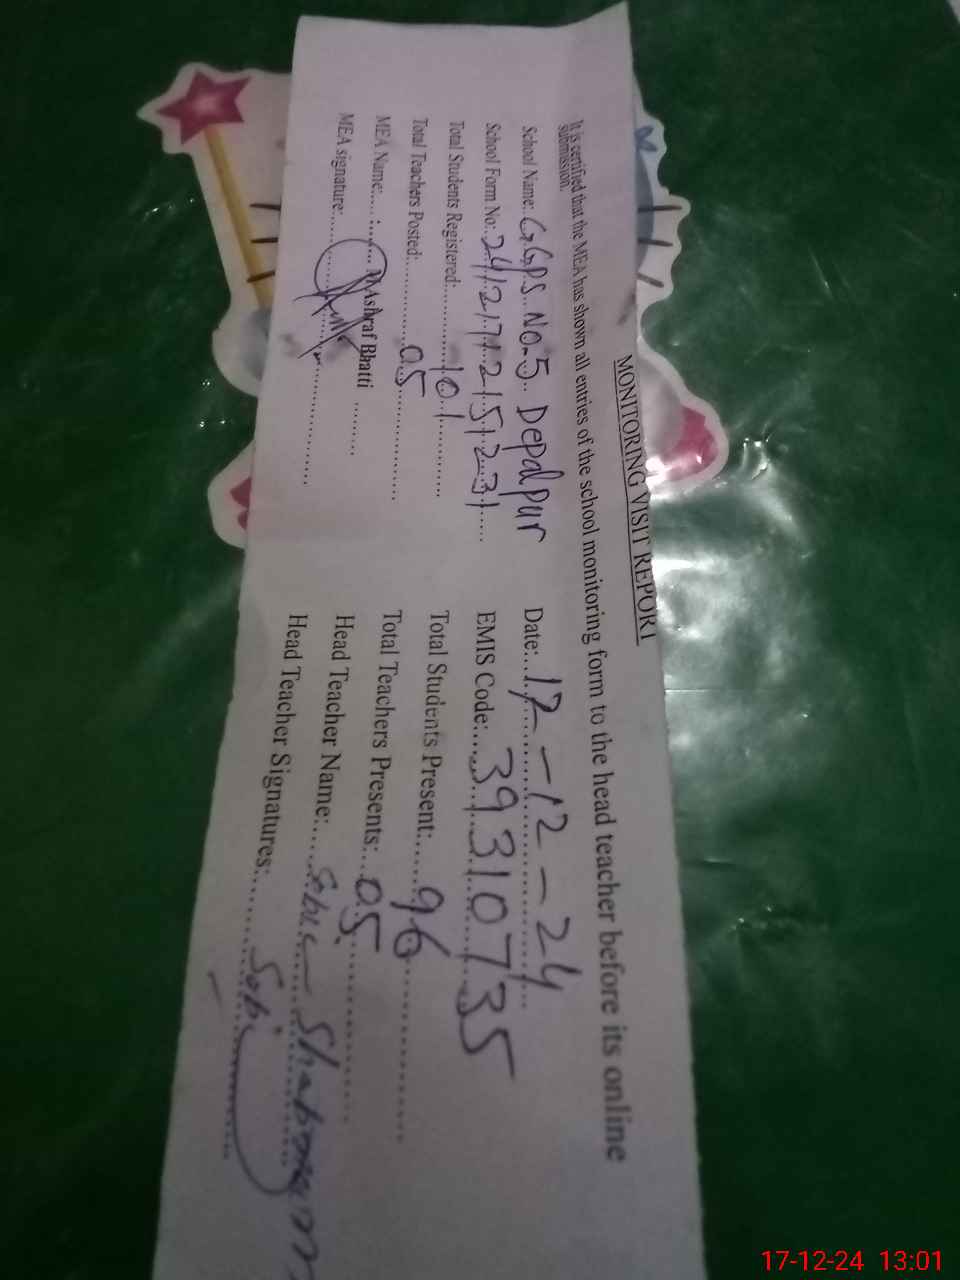 MONITORING VISIT REPORT
It is certified that the MEA has shown all entries of the school monitoring form to the head teacher before its online
submission.
School Name: G.G.P.S. NO-5 Depalpur Date: 17-12-24
School Form No: EMIS Code: 39310735
Total Students Registered: 101 Total Students Present: 96
Total Teachers Posted: 05 Total Teachers Presents: 05
MEA Name: M Ashraf Bhatti Head Teacher Name: Shabnam
MEA signature: Head Teacher Signatures:
17-12-24 13:01